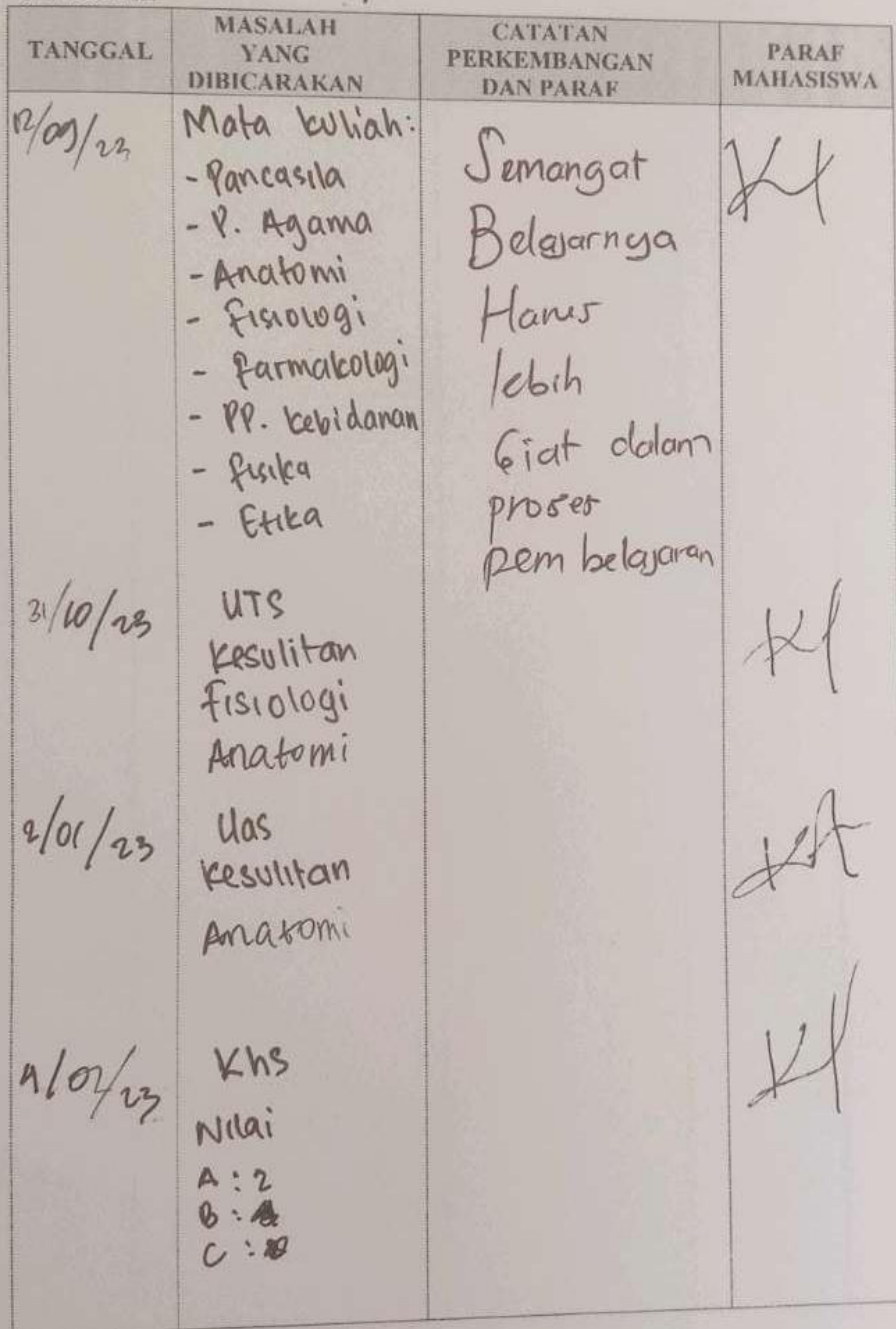 TANGGAL
MASALAH
YANG
DIBICARAKAN
CATATAN
PERKEMBANGAN
DAN PARAF
PARAF
MAHASISWA
12/09/23
Mata kuliah:
- Pancasila
- P. Agama
- Anatomi
- fisiologi
- farmakologi
- PP. kebidanan
- fisika
- Etika
Semangat
Belajarnya
Harus
lebih
Giat dalam
proses
pembelajaran
31/10/23
UTS
kesulitan
fisiologi
Anatomi
2/01/23
Uas
kesulitan
Anatomi
Khs
Nilai
A : 2
B :
C :